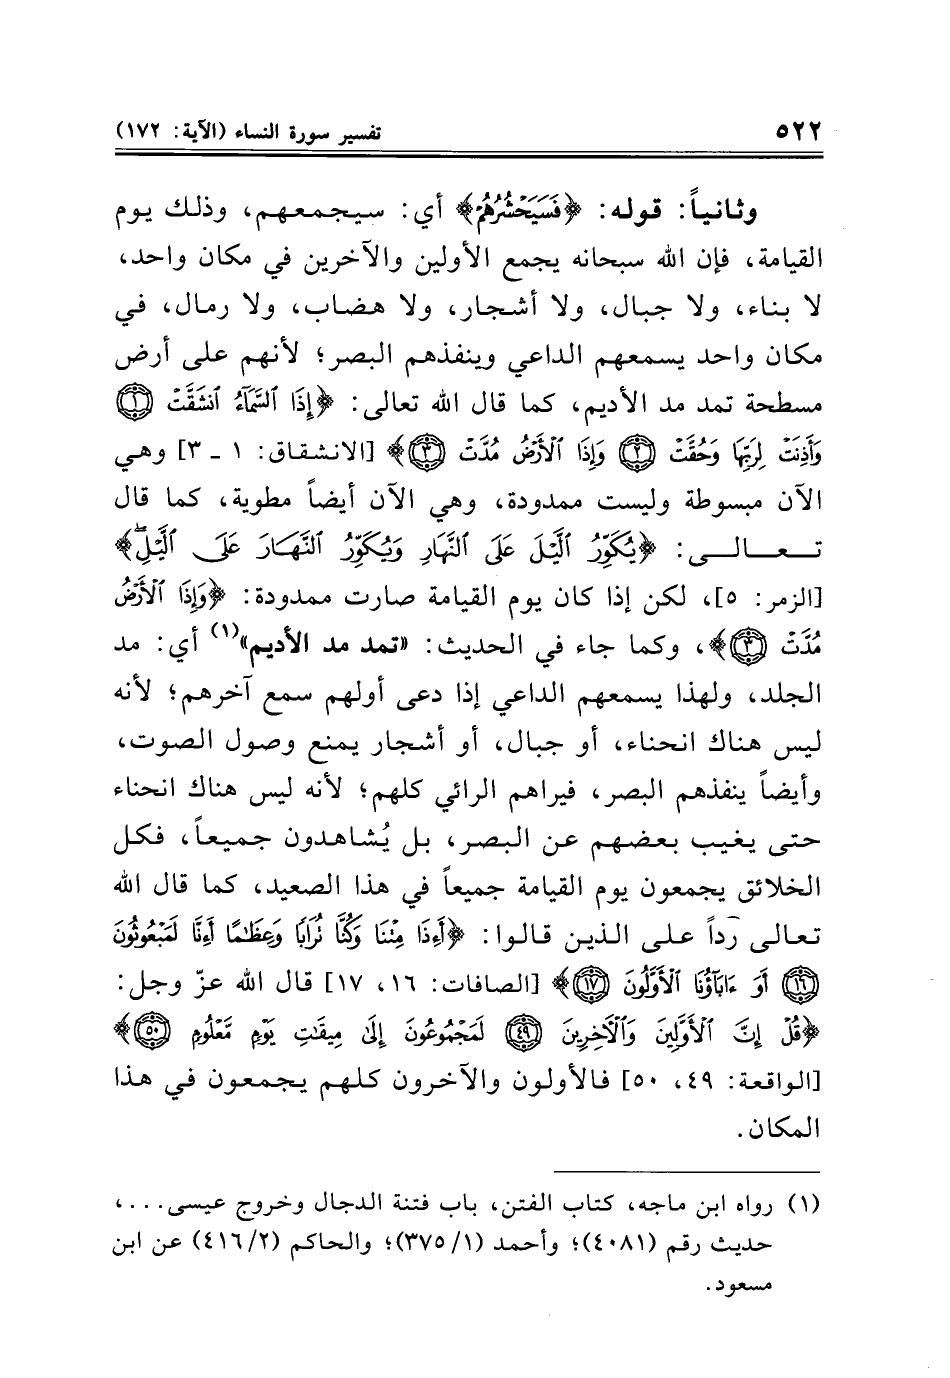 ٥٢٢ تفسير سورة النساء (الآية: ١٧٢)
وثانياً: قوله: ﴿فَسَيَحْشُرُهُمْ﴾ أي: سيجمعهم، وذلك يوم
القيامة، فإن الله سبحانه يجمع الأولين والآخرين في مكان واحد،
لا بناء، ولا جبال، ولا أشجار، ولا هضاب، ولا رمال، في
مكان واحد يسمعهم الداعي وينفذهم البصر؛ لأنهم على أرض
مسطحة تمد مد الأديم، كما قال الله تعالى: ﴿إِذَا ٱلسَّمَآءُ ٱنشَقَّتْ ١
وَأَذِنَتْ لِرَبِّهَا وَحُقَّتْ ٢ وَإِذَا ٱلْأَرْضُ مُدَّتْ ٣﴾ [الانشقاق: ١ ـ ٣] وهي
الآن مبسوطة وليست ممدودة، وهي الآن أيضاً مطوية، كما قال
تـعـالـى: ﴿يُكَوِّرُ ٱلَّيْلَ عَلَى ٱلنَّهَارِ وَيُكَوِّرُ ٱلنَّهَارَ عَلَى ٱلَّيْلِ﴾
[الزمر: ٥]، لكن إذا كان يوم القيامة صارت ممدودة: ﴿وَإِذَا ٱلْأَرْضُ
مُدَّتْ ٣﴾، وكما جاء في الحديث: «تمد مد الأديم»(١) أي: مد
الجلد، ولهذا يسمعهم الداعي إذا دعى أولهم سمع آخرهم؛ لأنه
ليس هناك انحناء، أو جبال، أو أشجار يمنع وصول الصوت،
وأيضاً ينفذهم البصر، فيراهم الرائي كلهم؛ لأنه ليس هناك انحناء
حتى يغيب بعضهم عن البصر، بل يُشاهدون جميعاً، فكل
الخلائق يجمعون يوم القيامة جميعاً في هذا الصعيد، كما قال الله
تعالى رداً على الذين قالوا: ﴿أَءِذَا مِتْنَا وَكُنَّا تُرَابًا وَعِظَٰمًا أَءِنَّا لَمَبْعُوثُونَ
١٦ أَوَ ءَابَآؤُنَا ٱلْأَوَّلُونَ ١٧﴾ [الصافات: ١٦، ١٧] قال الله عزّ وجل:
﴿قُلْ إِنَّ ٱلْأَوَّلِينَ وَٱلْءَاخِرِينَ ٤٩ لَمَجْمُوعُونَ إِلَىٰ مِيقَٰتِ يَوْمٍ مَّعْلُومٍ ٥٠﴾
[الواقعة: ٤٩، ٥٠] فالأولون والآخرون كلهم يجمعون في هذا
المكان.
(١) رواه ابن ماجه، كتاب الفتن، باب فتنة الدجال وخروج عيسى...،
حديث رقم (٤٠٨١)؛ وأحمد (١/ ٣٧٥)؛ والحاكم (٢/ ٤١٦) عن ابن
مسعود.